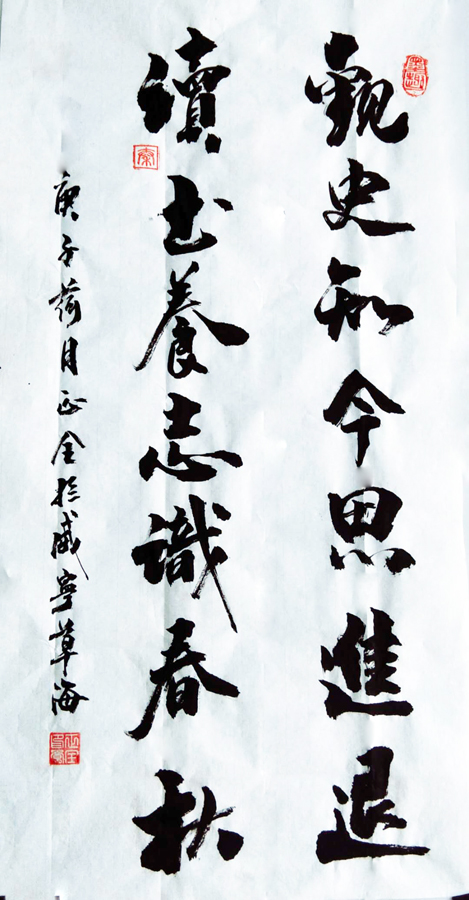 觀史知今思進退
讀书養志識春秋
庚子荷月正全於威寧草海